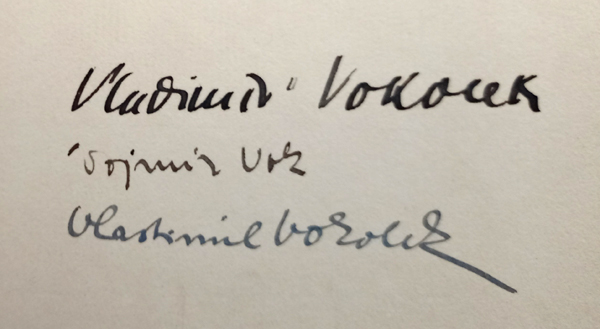 Vladimír Vokolek
Vojmír Vok
Vlastimil Vokolek